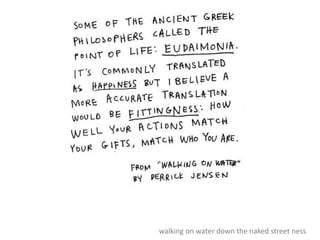 SOME OF THE ANCIENT GREEK
PHILOSOPHERS CALLED THE
POINT OF LIFE: EUDAIMONIA.
IT'S COMMONLY TRANSLATED
AS HAPPINESS BUT I BELIEVE A
MORE ACCURATE TRANSLATION
WOULD BE FITTINGNESS: HOW
WELL YOUR ACTIONS MATCH
YOUR GIFTS, MATCH WHO YOU ARE.
FROM "WALKING ON WATER"
BY DERRICK JENSEN
walking on water down the naked street ness